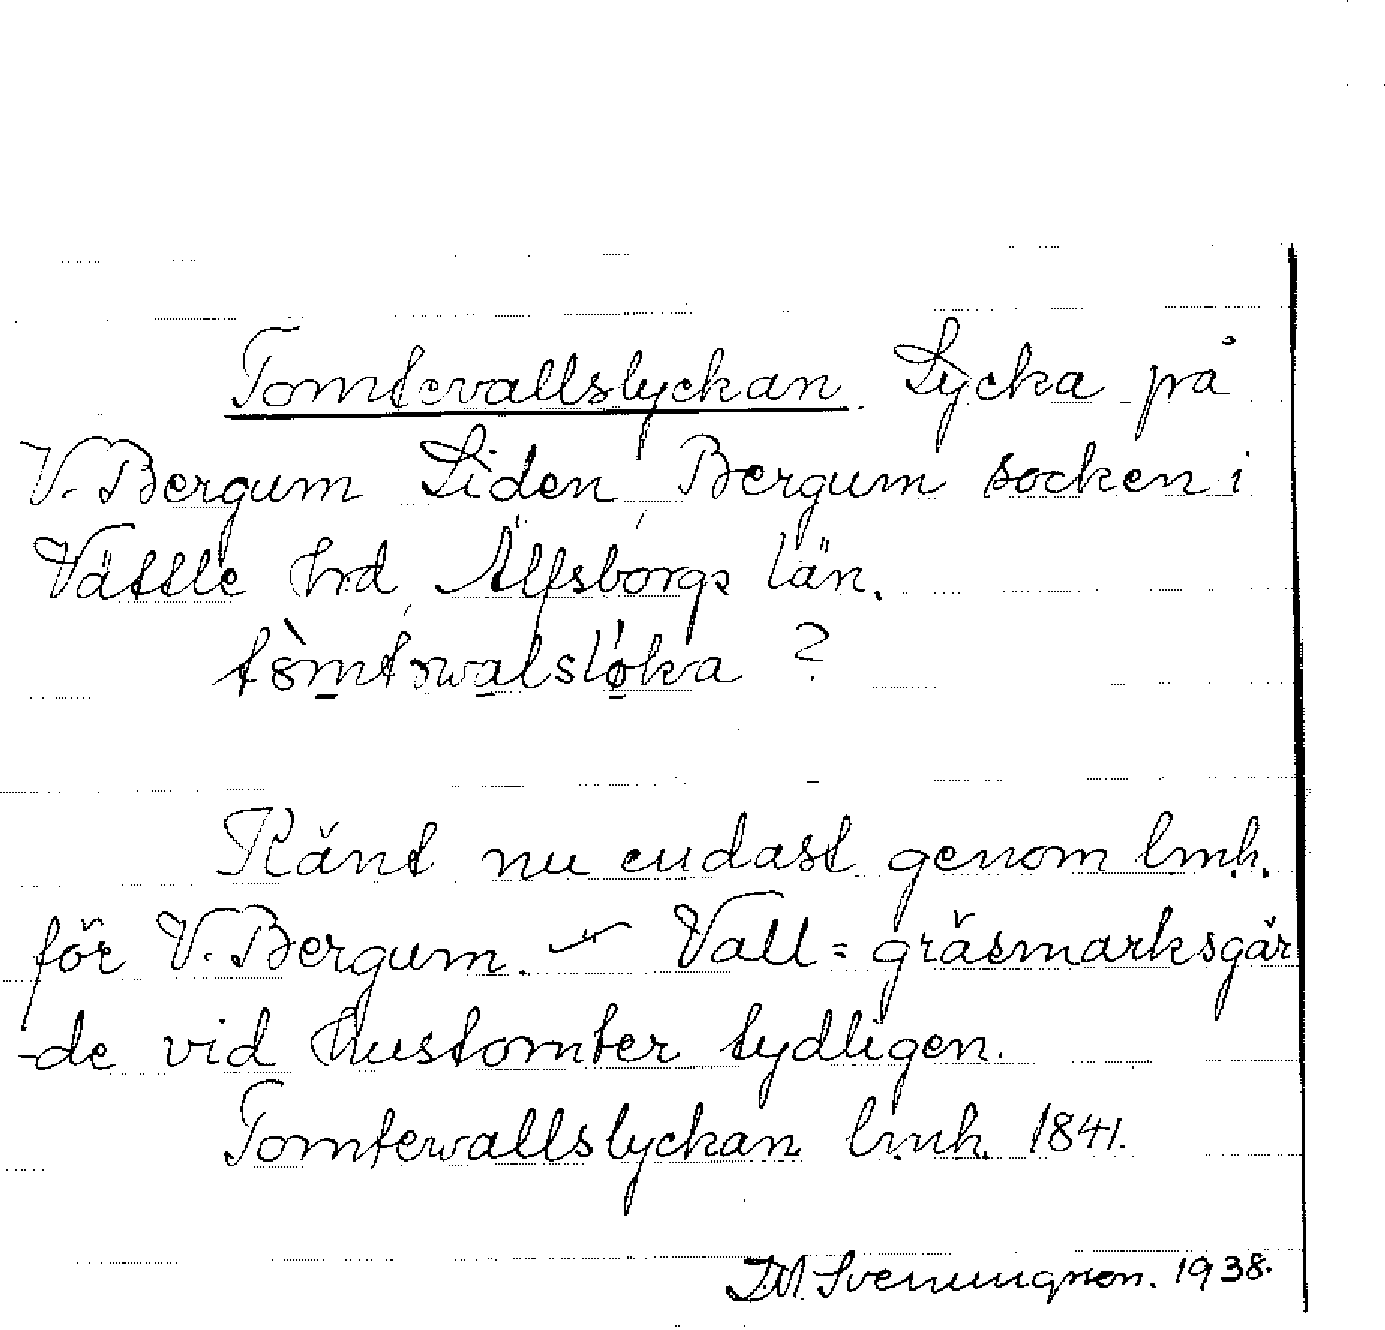 Tomtevallslyckan. Lycka på
V. Bergum Liden, Bergum socken i
Vättle hrd, Älfsborgs län.
?
Känt nu endast genom lmh.
för V. Bergum. — Vall = gräsmarksgär
-de vid hustomter tydligen.
Tomtewallslyckan lmh. 1841.
1938.